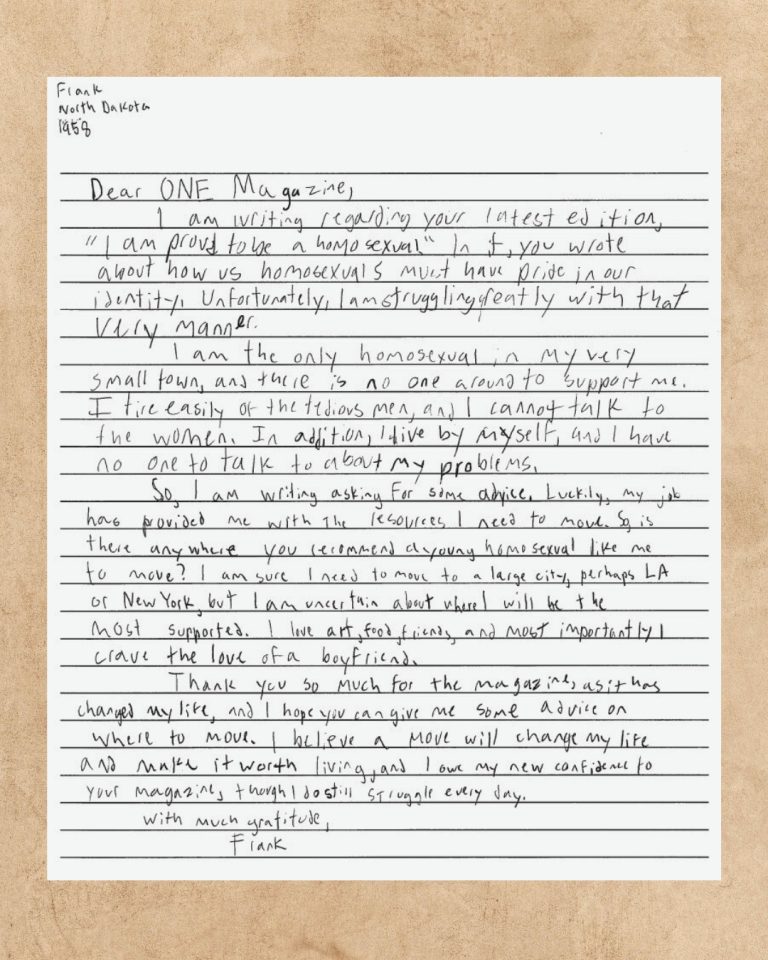 Frank
North Dakota
1958
Dear ONE Magazine,
I am writing regarding your latest edition,
"I am proud to be a homosexual" In it, you wrote
about how us homosexuals must have pride in our
identity. Unfortunately, I am struggling greatly with that
very manner.
I am the only homosexual in my very
small town, and there is no one around to support me.
I tire easily of the tedious men, and I cannot talk to
the women. In addition, I live by myself, and I have
no one to talk to about my problems.
So, I am writing asking for some advice. Luckily, my job
has provided me with the resources I need to move. So, is
there anywhere you recommend a young homosexual like me
to move? I am sure I need to move to a large city, perhaps LA
or New York, but I am uncertain about where I will be the
most supported. I love art, food, friends, and most importantly I
crave the love of a boyfriend.
Thank you so much for the magazine, as it has
changed my life, and I hope you can give me some advice on
where to move. I believe a move will change my life
and make it worth living, and I owe my new confidence to
your magazine, though I do still struggle every day.
With much gratitude,
Frank